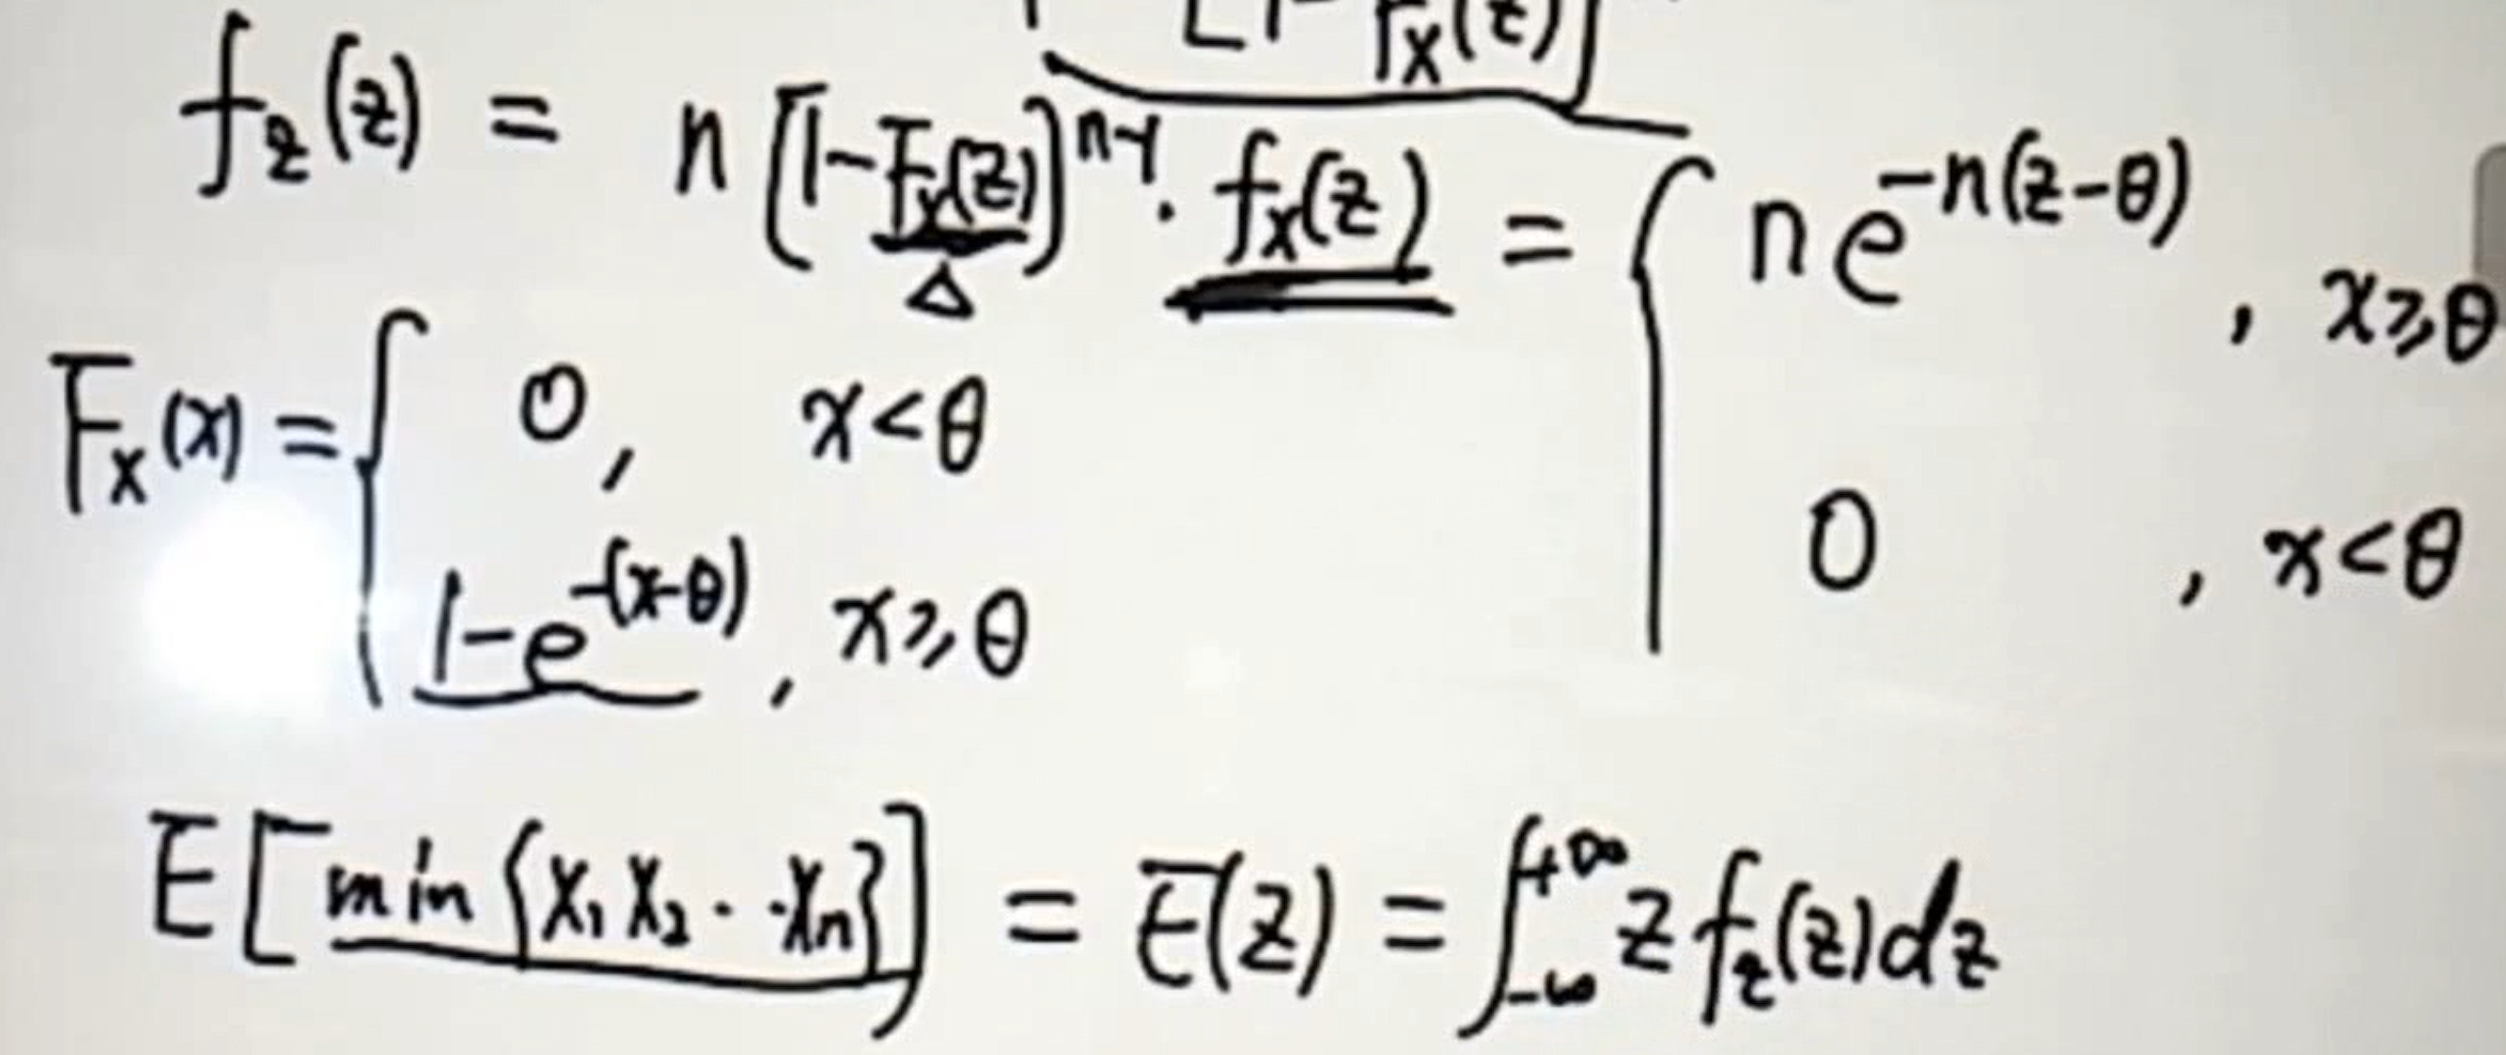 [1-F_X(z)]
f_Z(z) = n[1-F_X(z)]^{n-1} · f_X(z) = { ne^{-n(z-θ)}, x≥θ
0, x<θ
F_X(x) = { 0, x<θ
1-e^{-(x-θ)}, x≥θ
E[min{X₁ X₂ · · Xn}] = E(Z) = ∫_{-∞}^{+∞} z f_Z(z)dz